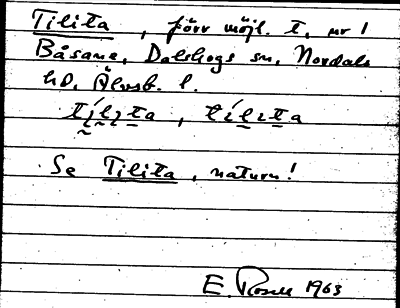 Tilita, förr möjl. t. nr 1
Båsane, Dalskogs sn, Nordals
hd, Älvsb. l.
tílita, tílita
Se Tilita, naturn!
E. Rosell 1963